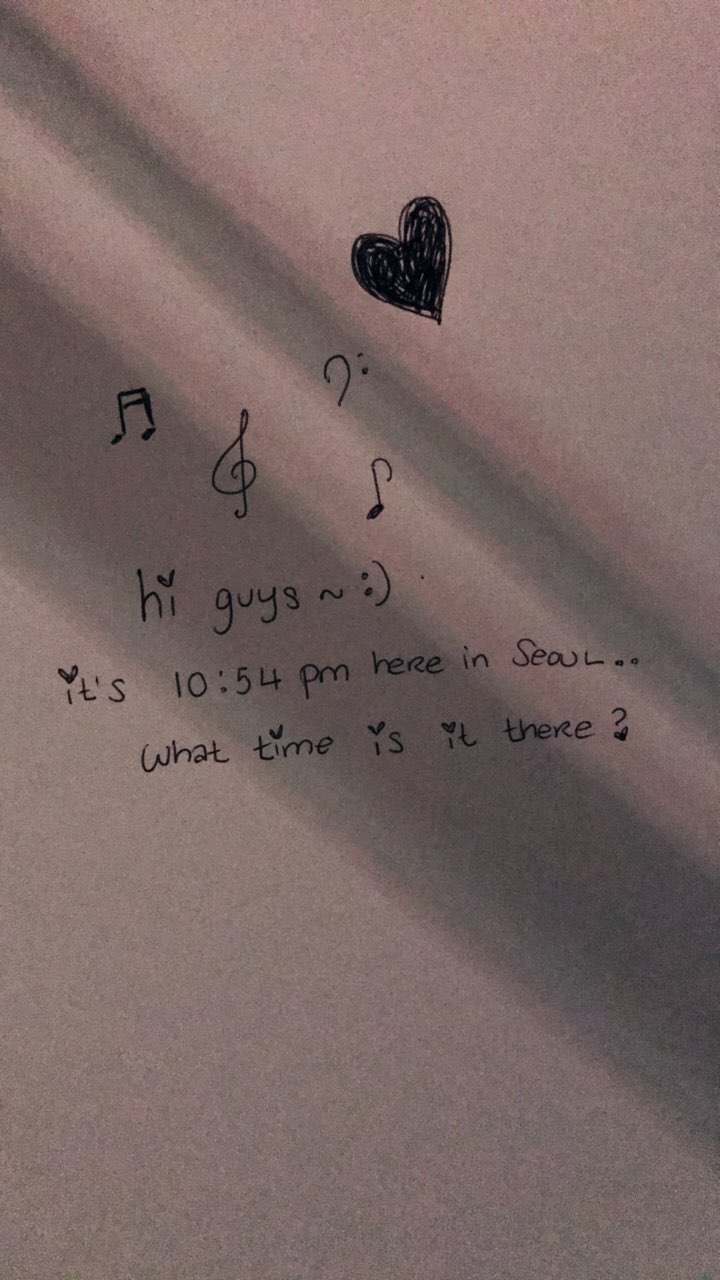 hi guys ~ :)
it's 10:54 pm here in Seoul..
What time is it there?